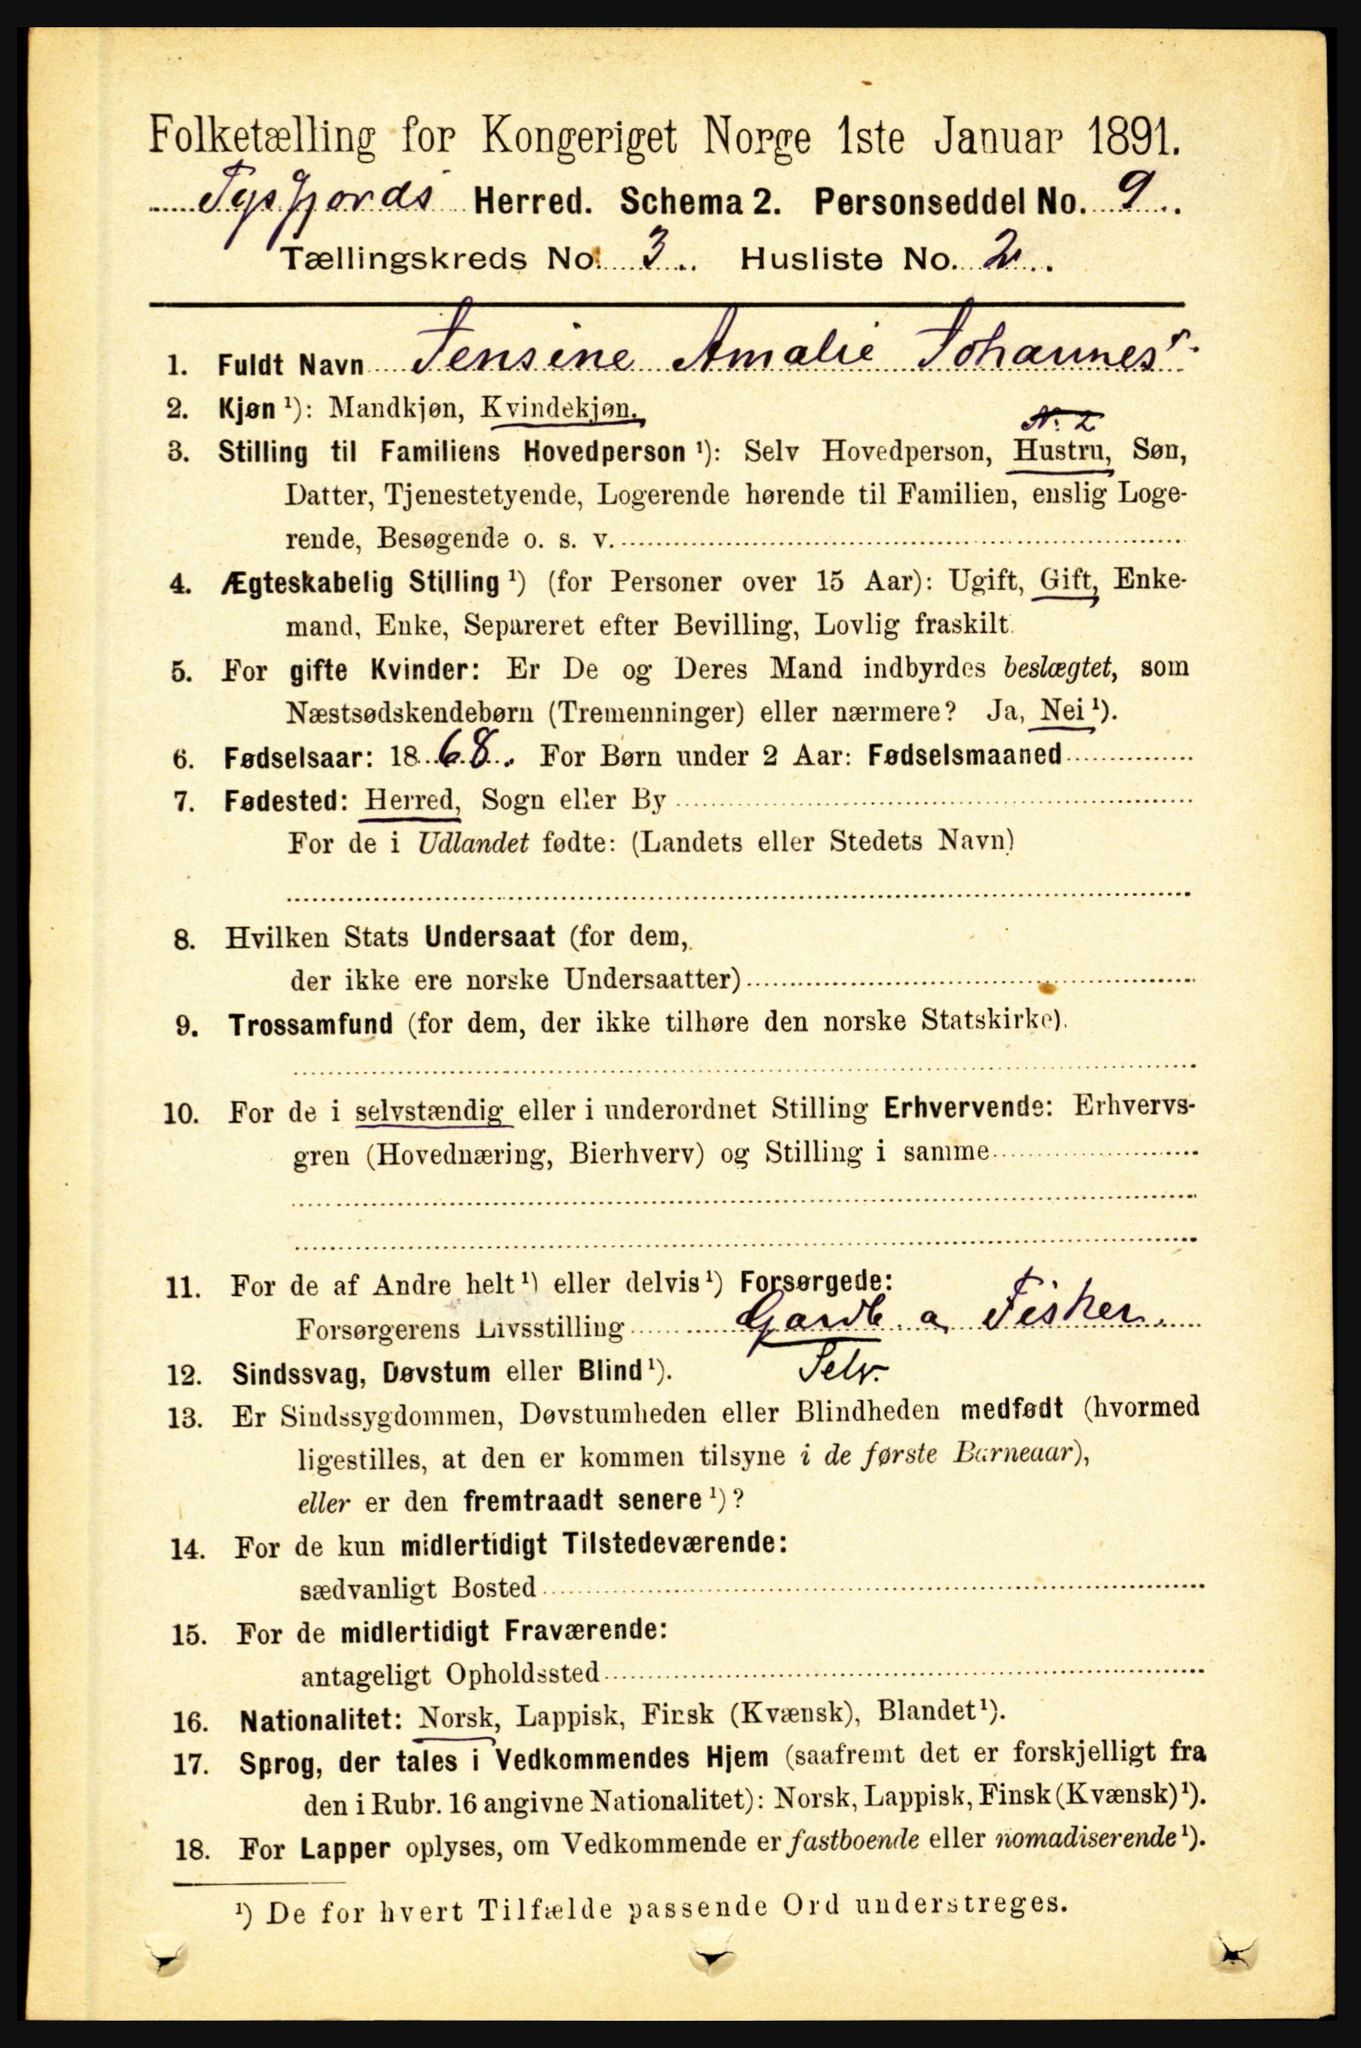 Folketælling for Kongeriget Norge 1ste Januar 1891.
Tysfjords Herred. Schema 2. Personseddel No. 9.
Tællingskreds No. 3. Husliste No. 2.
1. Fuldt Navn Jensine Amalie Johannesd.
2. Kjøn ¹): Mandkjøn, Kvindekjøn.
N. 2
3. Stilling til Familiens Hovedperson ¹): Selv Hovedperson, Hustru, Søn,
Datter, Tjenestetyende, Logerende hørende til Familien, enslig Loge-
rende, Besøgende o. s. v.
4. Ægteskabelig Stilling ¹) (for Personer over 15 Aar): Ugift, Gift, Enke-
mand, Enke, Separeret efter Bevilling, Lovlig fraskilt.
5. For gifte Kvinder: Er De og Deres Mand indbyrdes beslægtet, som
Næstsødskendebørn (Tremenninger) eller nærmere? Ja, Nei ¹).
6. Fødselsaar: 1868. For Børn under 2 Aar: Fødselsmaaned
7. Fødested: Herred, Sogn eller By
For de i Udlandet fødte: (Landets eller Stedets Navn)
8. Hvilken Stats Undersaat (for dem,
der ikke ere norske Undersaatter)
9. Trossamfund (for dem, der ikke tilhøre den norske Statskirke).
10. For de i selvstændig eller i underordnet Stilling Erhvervende: Erhvervs-
gren (Hovednæring, Bierhverv) og Stilling i samme
11. For de af Andre helt ¹) eller delvis ¹) Forsørgede:
Forsørgerens Livsstilling Gardb. a Fisker.
Selv.
12. Sindssvag, Døvstum eller Blind ¹).
13. Er Sindssygdommen, Døvstumheden eller Blindheden medfødt (hvormed
ligestilles, at den er kommen tilsyne i de første Barneaar),
eller er den fremtraadt senere ¹)?
14. For de kun midlertidigt Tilstedeværende:
sædvanligt Bosted
15. For de midlertidigt Fraværende:
antageligt Opholdssted
16. Nationalitet: Norsk, Lappisk, Finsk (Kvænsk), Blandet ¹).
17. Sprog, der tales i Vedkommendes Hjem (saafremt det er forskjelligt fra
den i Rubr. 16 angivne Nationalitet): Norsk, Lappisk, Finsk (Kvænsk) ¹).
18. For Lapper oplyses, om Vedkommende er fastboende eller nomadiserende ¹).
¹) De for hvert Tilfælde passende Ord understreges.